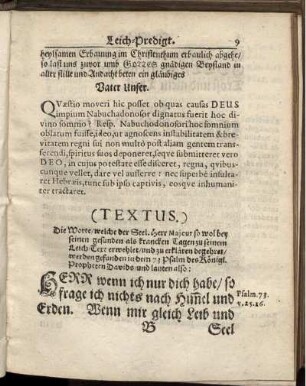 Leich-Predigt. 9
heylsamen Erbauung im Christenthum erbaulich abgehe/
so last uns zuvor umb GOTTES gnädigen Beystand in
aller stille und Andacht beten ein gläubiges
Vater Unser.
QVæstio moveri hic posset ob quas causas DEUS
impium Nabuchodonosor dignatus fuerit hoc di-
vino somnio? Resp. Nabuchodonosori hoc somnium
oblatum fuisse, à deo, ut agnoscens instabilitatem & bre-
vitatem regni sui non multò post aliam gentem trans-
ferendi, spiritus suos deponeret, seqve submitteret vero
DEO, in cujus potestate esse disceret, regna, qvibus-
cunque vellet, dare vel auferre: nec superbè insulta-
ret Hebræis, tunc sub ipso captivis, eosqve inhumani-
ter tractaret.
(TEXTUS.)
Die Worte/ welche der Seel. Herr Majeur so wol bey
seinen gesunden als krancken Tagen zu seinem
Leich-Text erwehlet/ und zu erklären begehret/
werden gefunden in dem 73 Psalm des Königl.
Propheten Davids und lauten also:
HERR wenn ich nur dich habe/ so
frage ich nichts nach Himmel und
Erden. Wenn mir gleich Leib und
Psalm. 73.
v. 25. 26.
B Seel